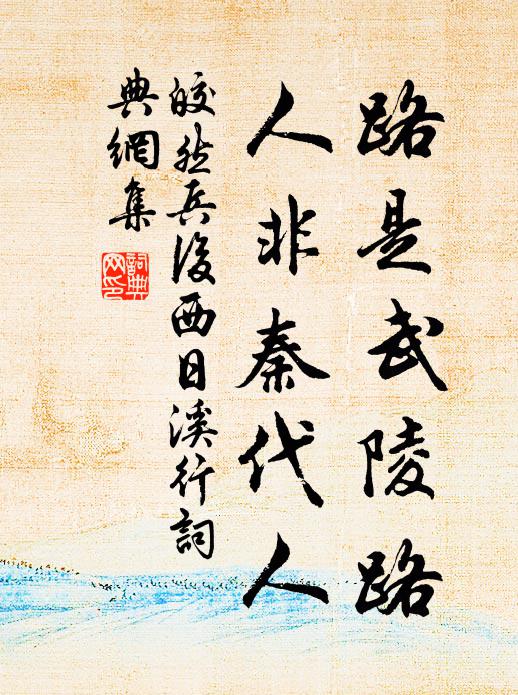 路是武陵路
人非秦代人
皎然兵後西日溪行詞
典網集
詞典網印